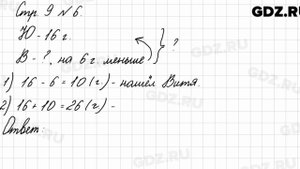 Стр. 9 № 6.
GDZ.RU
Ю - 16 г.
В - ?, на 6 г. меньше } ?
1) 16 - 6 = 10 (г.) - нашёл Витя.
2) 16 + 10 = 26 (г.) -
Ответ:
GDZ.RU